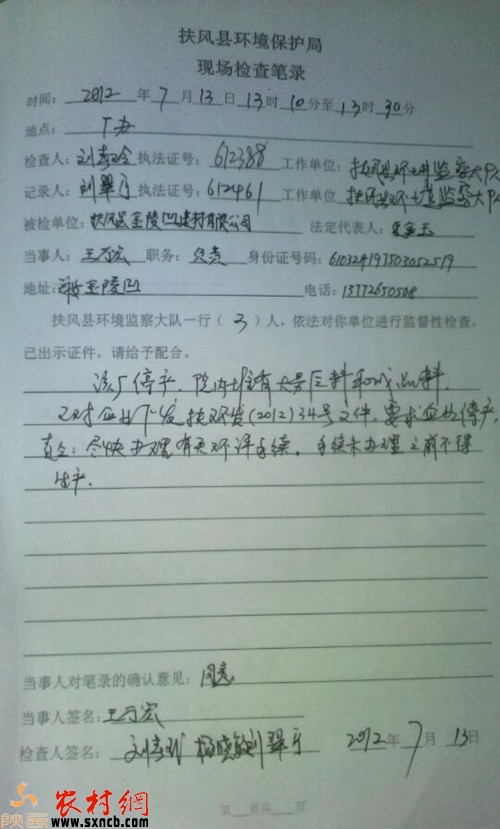 扶风县环境保护局
现场检查笔录
时间：2012年7月13日13时10分至13时30分
地点：厂办
检查人：刘 执法证号：612388 工作单位：扶风县环境监察大队
记录人：刘翠 执法证号：612461 工作单位 扶风县环境监察大队
被检单位：扶风县金陵凹建材有限公司 法定代表人：玉
当事人：王 宏 职务：负责 身份证号码：610324197503052519
地址：金陵凹 电话：13772650508
扶风县环境监察大队一行（3）人，依法对你单位进行监督性检查，
已出示证件，请给予配合。
该厂停产，院内堆有大量原料和成品料，
已对企业下发扶环发(2012)34号文件，要求企业停产
责令：尽快办理有关环评手续。手续未办理之前不得
生产。
当事人对笔录的确认意见：同意
当事人签名：王 宏
检查人签名：刘 杨晓 刘翠 2012年7月13日
第 页共 页
陕西农村網
www.sxncb.com